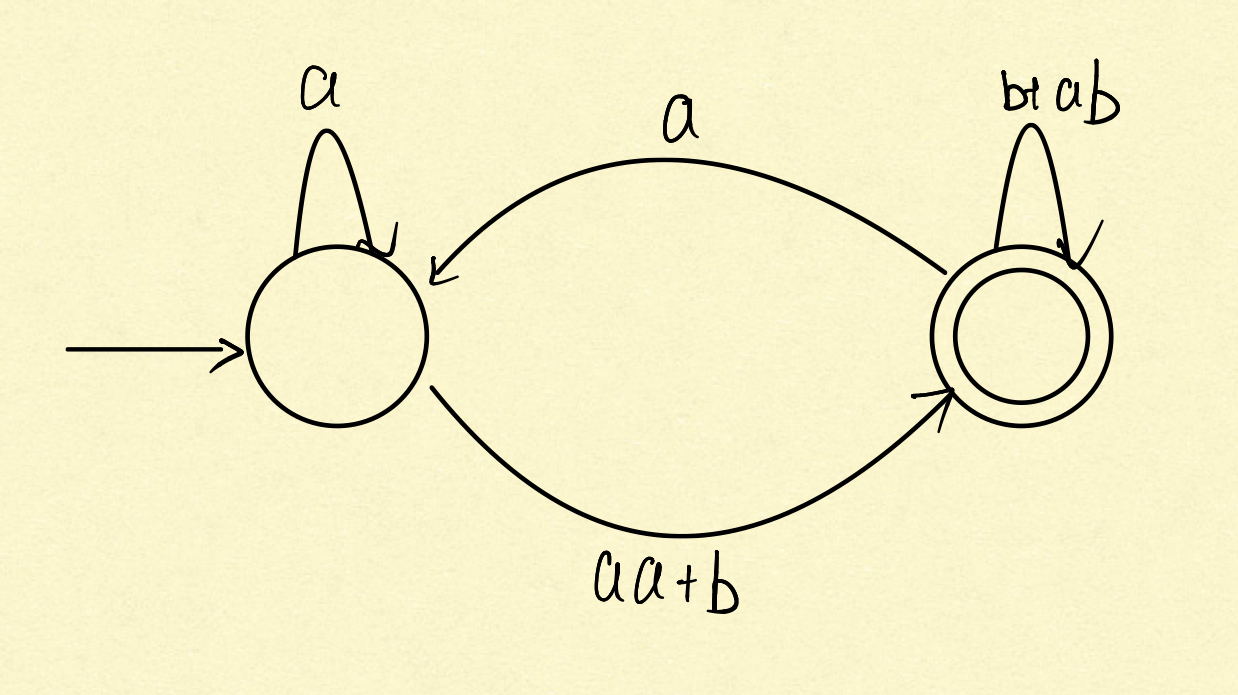 a
a
b+ab
aa+b